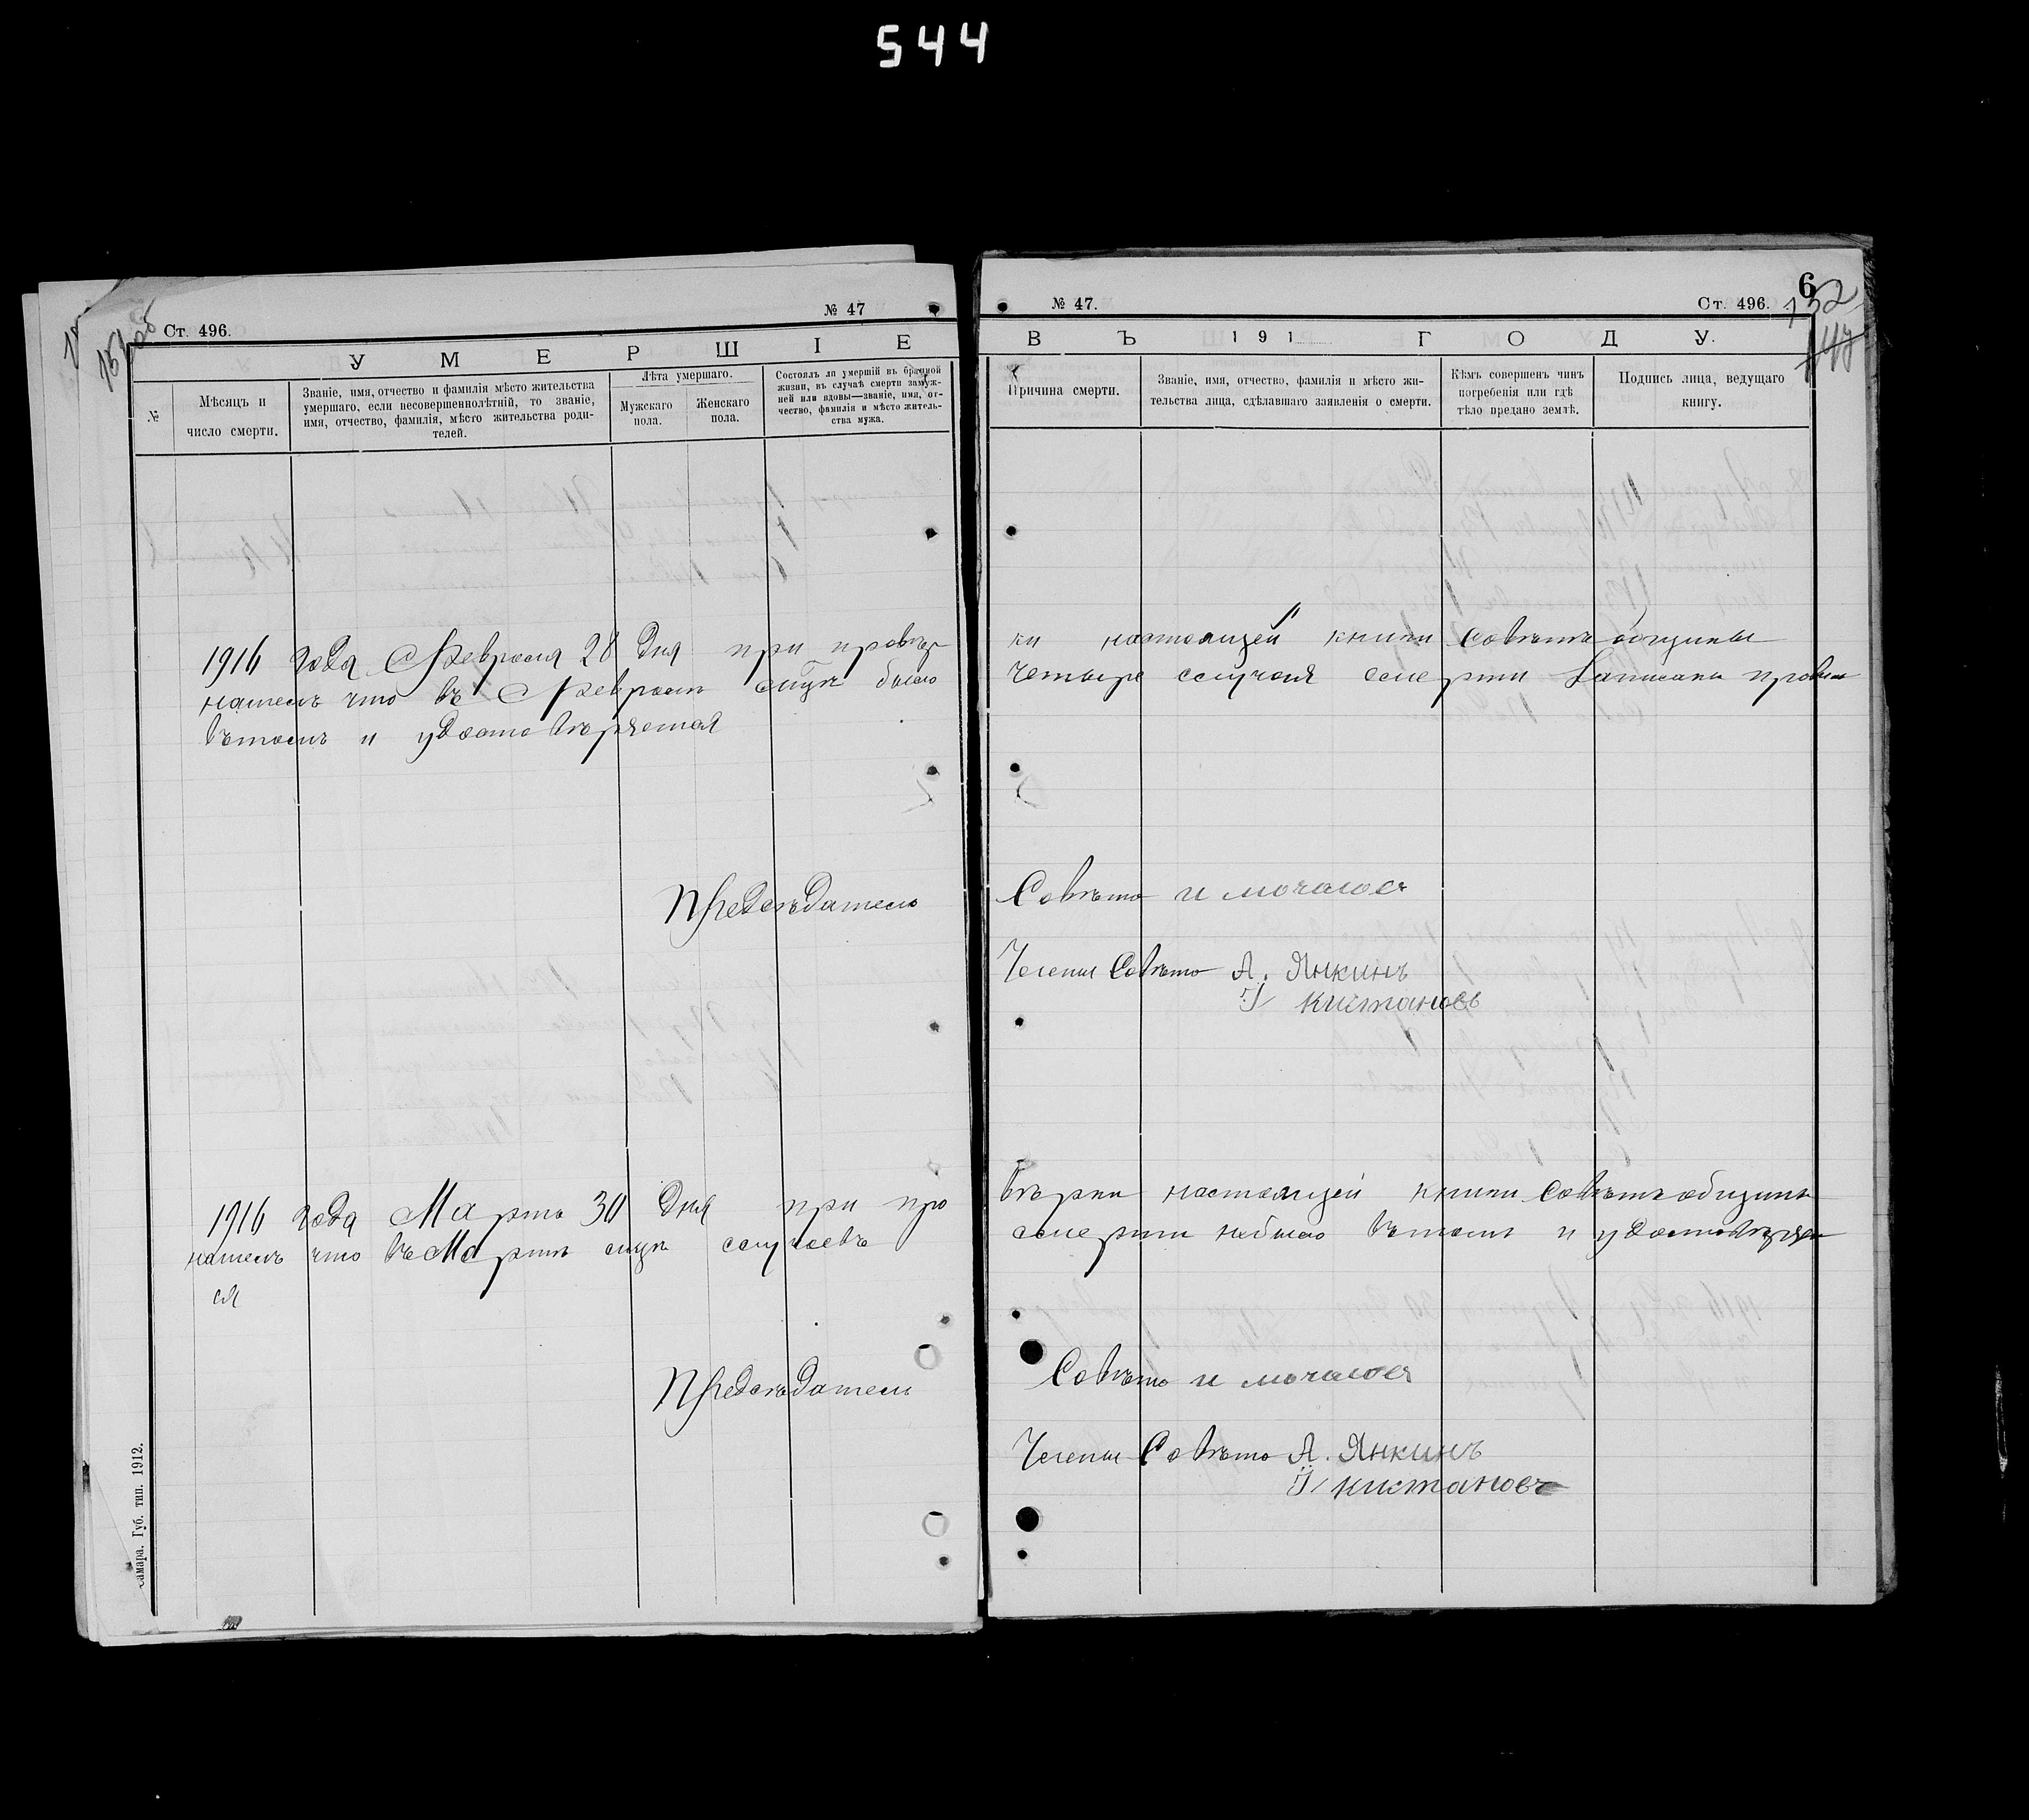 544
Ст. 496.
№ 47
УМЕРШІЕ
№
Мѣсяцъ и число смерти.
Званіе, имя, отчество и фамилія мѣсто жительства
умершаго, если несовершеннолѣтній, то званіе,
имя, отчество, фамилія, мѣсто жительства роди-
телей.
Лѣта умершаго.
Мужскаго пола.
Женскаго пола.
Состоялъ ли умершій въ брачной
жизни, въ случаѣ смерти замуж-
ней или вдовы—званіе, имя, от-
чество, фамилія и мѣсто житель-
ства мужа.
1916 года Февраля 28 дня при провѣр
нашелъ что въ Февралѣ было
вътомъ и удостовѣряетая
Предсѣдатель
1916 года Марта 30 дня при про
нашелъ что въ Мартѣ случаевъ
ся
Предсѣдатель
Самара. Губ. тип. 1912.
№ 47.
Ст. 496.
6
132
ВЪ 191 ГОДУ.
Причина смерти.
Званіе, имя, отчество, фамилія и мѣсто жи-
тельства лица, сдѣлавшаго заявленія о смерти.
Кѣмъ совершенъ чинъ
погребенія или гдѣ
тѣло предано землѣ.
Подпись лица, ведущаго
книгу.
ки настоящей книги совѣтъ общины
четыре случая смерти записаны
Совѣта и мочалов
Члены Совѣта А. Янкинъ
Кистановъ
вѣрки настоящей книги совѣтъ общины
смерти небыло вътомъ и удостовѣряет
Совѣта и мочалов
Члены Совѣта А. Янкинъ
Кистановъ